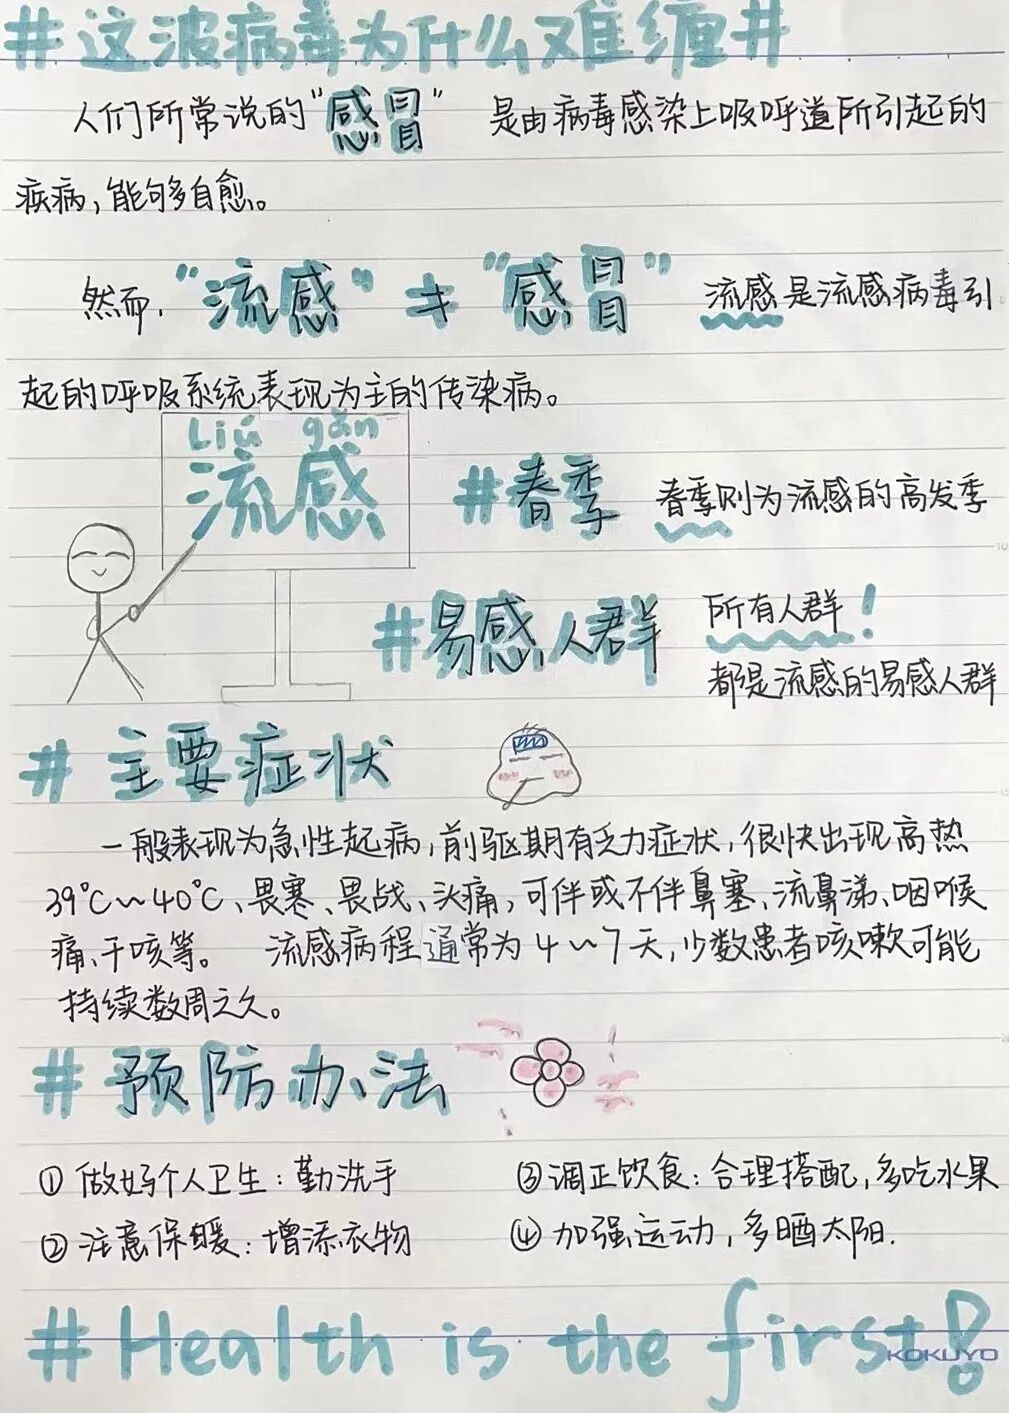 #这波病毒为什么难缠#
人们所常说的"感冒" 是由病毒感染上吸呼道所引起的
疾病,能够自愈。
然而,"流感"≠"感冒" 流感是流感病毒引
起的呼吸系统表现为主的传染病。
Liú gǎn
流感
#春季 春季则为流感的高发季
#易感人群 所有人群!
都是流感的易感人群
#主要症状
一般表现为急性起病,前驱期有乏力症状,很快出现高热
39℃~40℃、畏寒、畏战、头痛,可伴或不伴鼻塞、流鼻涕、咽喉
痛、干咳等。 流感病程通常为4~7天,少数患者咳嗽可能
持续数周之久。
#预防办法
①做好个人卫生:勤洗手
②注意保暖:增添衣物
③调正饮食:合理搭配,多吃水果
④加强运动,多晒太阳.
#Health is the first!
KOKUYO